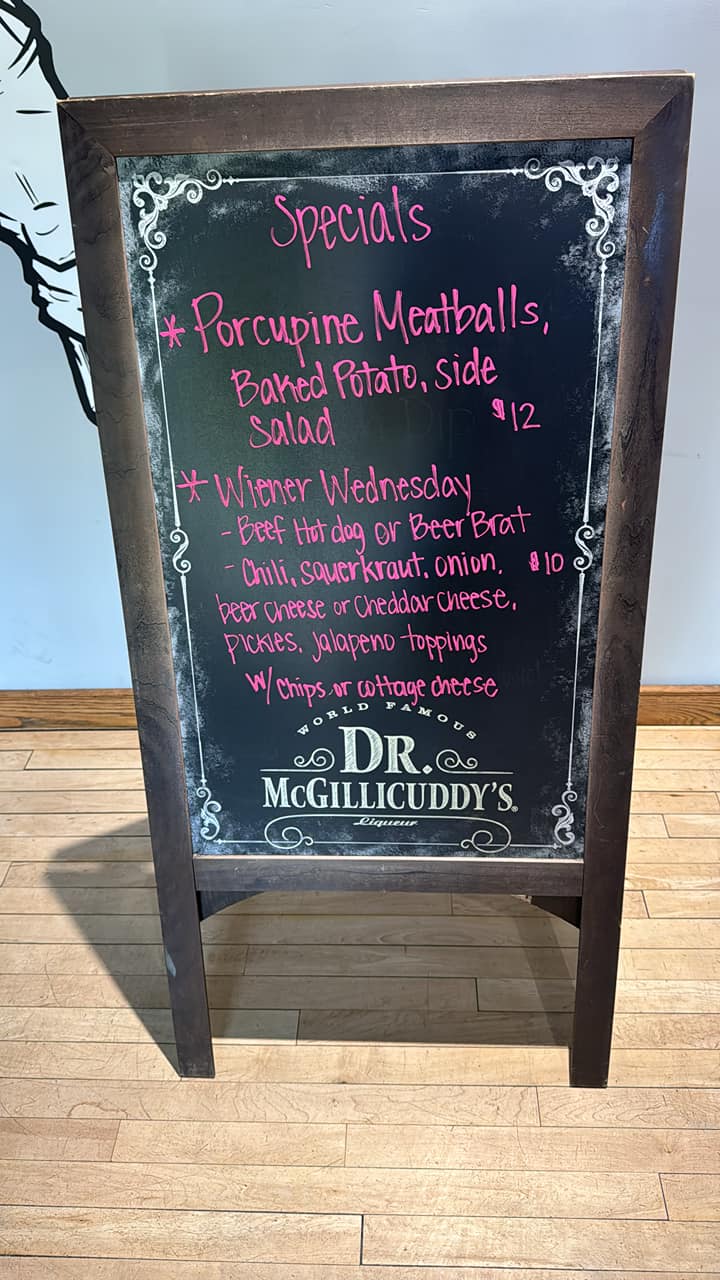 Specials
* Porcupine Meatballs,
Baked Potato, side
salad $12
* Wiener Wednesday
- Beef Hot dog or Beer Brat
- Chili, sauerkraut, onion, $10
beer cheese or cheddar cheese,
pickles, jalapeno toppings
w/ chips or cottage cheese
WORLD FAMOUS
DR.
McGILLICUDDY'S®
Liqueur